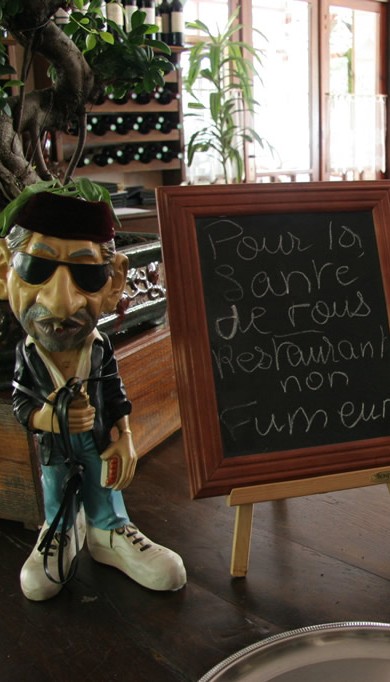 Pour la
Santé
de Tous
Restaurant
non
Fumeur